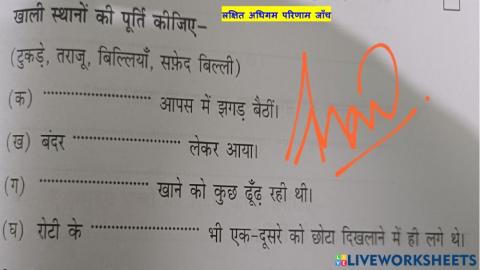 खाली स्थानों की पूर्ति कीजिए–
लक्षित अधिगम परिणाम जाँच
(टुकड़े, तराजू, बिल्लियाँ, सफ़ेद बिल्ली)
(क) ........................ आपस में झगड़ बैठीं।
(ख) बंदर ........................ लेकर आया।
(ग) ........................ खाने को कुछ ढूँढ़ रही थी।
(घ) रोटी के ........................ भी एक-दूसरे को छोटा दिखलाने में ही लगे थे।
LIVEWORKSHEETS